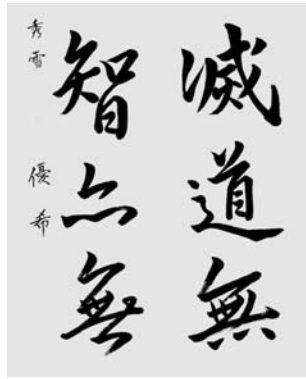 滅道無
智亦無
秀雪 優希